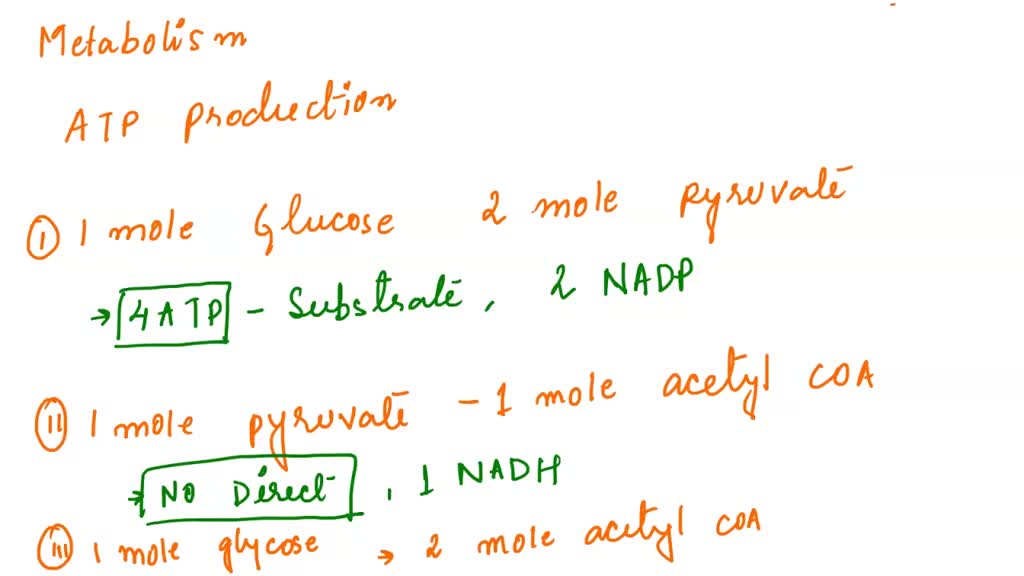 Metabolism
ATP production
(i) 1 mole Glucose 2 mole pyruvate
→ 4 ATP - Substrate, 2 NADP
(ii) 1 mole pyruvate - 1 mole acetyl COA
→ No Direct, 1 NADH
(iii) 1 mole glycose → 2 mole acetyl COA